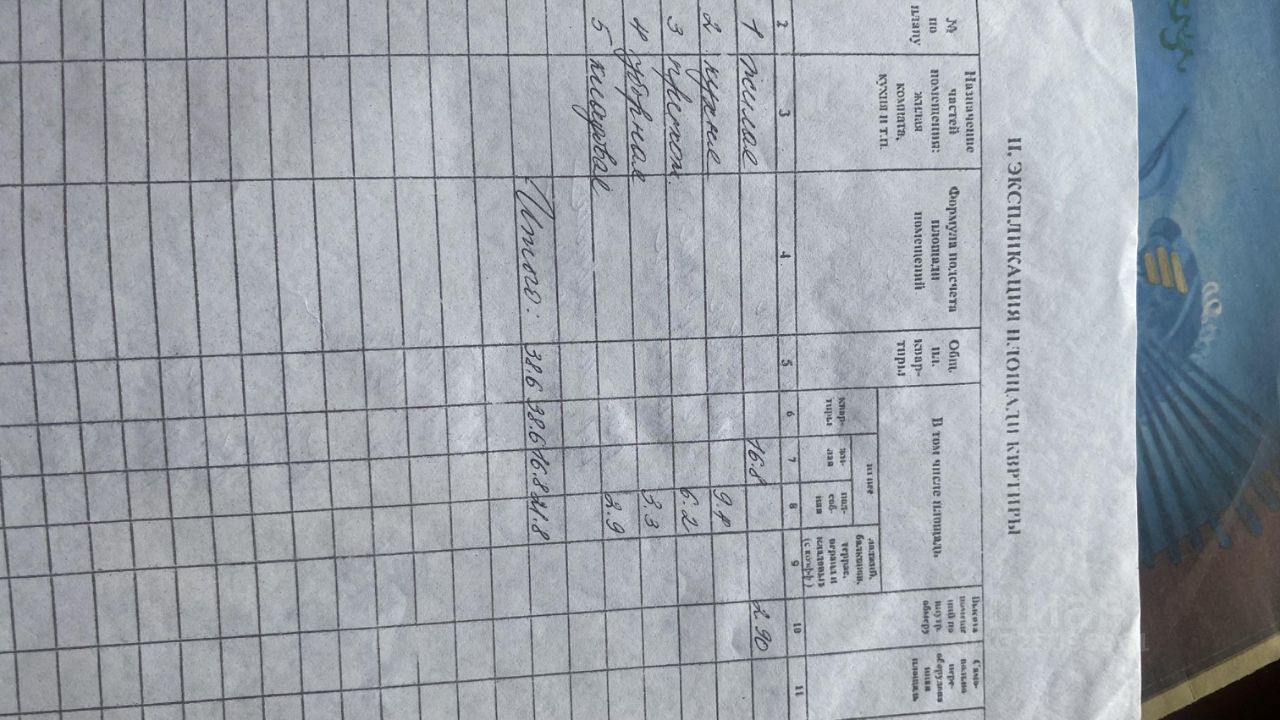 II. ЭКСПЛИКАЦИЯ ПЛОЩАДИ КВРТИРЫ
№ по плану
Назначение частей помещения: жилая комната, кухня и т.п.
Формула подсчета площади помещений
Общ. пл. квартиры
В том числе площадь
из нее
квартиры
жилая
подсобная
лоджий, балконов, террас, веранд и кладовых (с коэфф)
Высота помещений по внутр. обмеру
Самовольно переоборудованная площадь
2 3 4 5 6 7 8 9 10 11
1 жилая 16.8 2.90
2 кухня 9.4
3 прихож. 6.2
4 уборная 3.3
5 кладовая 2.9
Итого: 38.6 38.6 16.8 21.8